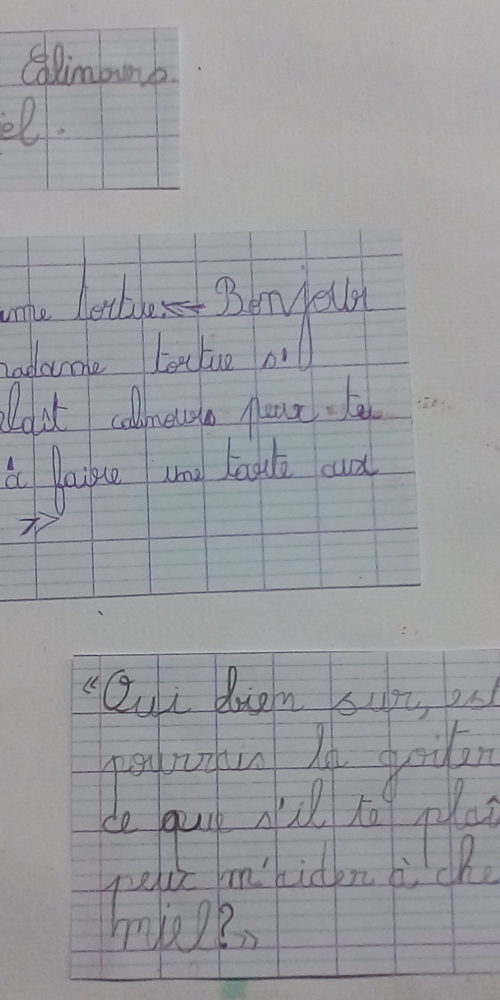 Calinours.
iel.
me tortue « Bonjour
madame tortue s'il
plait calinours peux-tu
à faire une tarte aux
»
"Oui bien sur, est
pourrais la goiter
ce que s'il te plaî
peux m'aider à che
miel?»